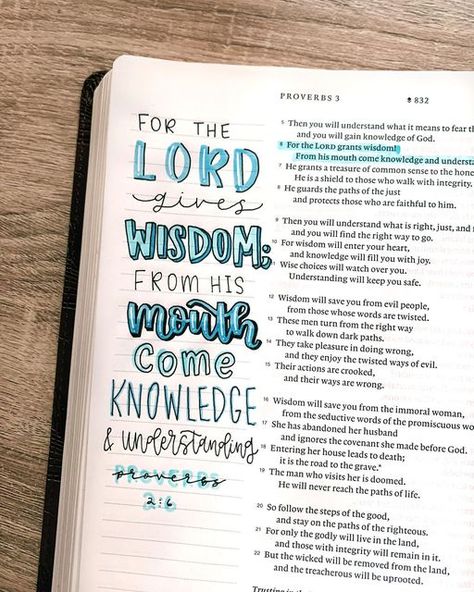 FOR THE
LORD
gives
WISDOM;
FROM HIS
mouth
come
KNOWLEDGE
& understanding
proverbs
2:6
PROVERBS 3 832
5 Then you will understand what it means to fear th
and you will gain knowledge of God.
6 For the LORD grants wisdom!
From his mouth come knowledge and understa
7 He grants a treasure of common sense to the hone
He is a shield to those who walk with integrity.
8 He guards the paths of the just
and protects those who are faithful to him.
9 Then you will understand what is right, just, and
and you will find the right way to go.
10 For wisdom will enter your heart,
and knowledge will fill you with joy.
11 Wise choices will watch over you.
Understanding will keep you safe.
12 Wisdom will save you from evil people,
from those whose words are twisted.
13 These men turn from the right way
to walk down dark paths.
14 They take pleasure in doing wrong,
and they enjoy the twisted ways of evil.
15 Their actions are crooked,
and their ways are wrong.
16 Wisdom will save you from the immoral woman,
from the seductive words of the promiscuous wo
17 She has abandoned her husband
and ignores the covenant she made before God.
18 Entering her house leads to death;
it is the road to the grave.*
19 The man who visits her is doomed.
He will never reach the paths of life.
20 So follow the steps of the good,
and stay on the paths of the righteous.
21 For only the godly will live in the land,
and those with integrity will remain in it.
22 But the wicked will be removed from the land,
and the treacherous will be uprooted.
Trusting in the